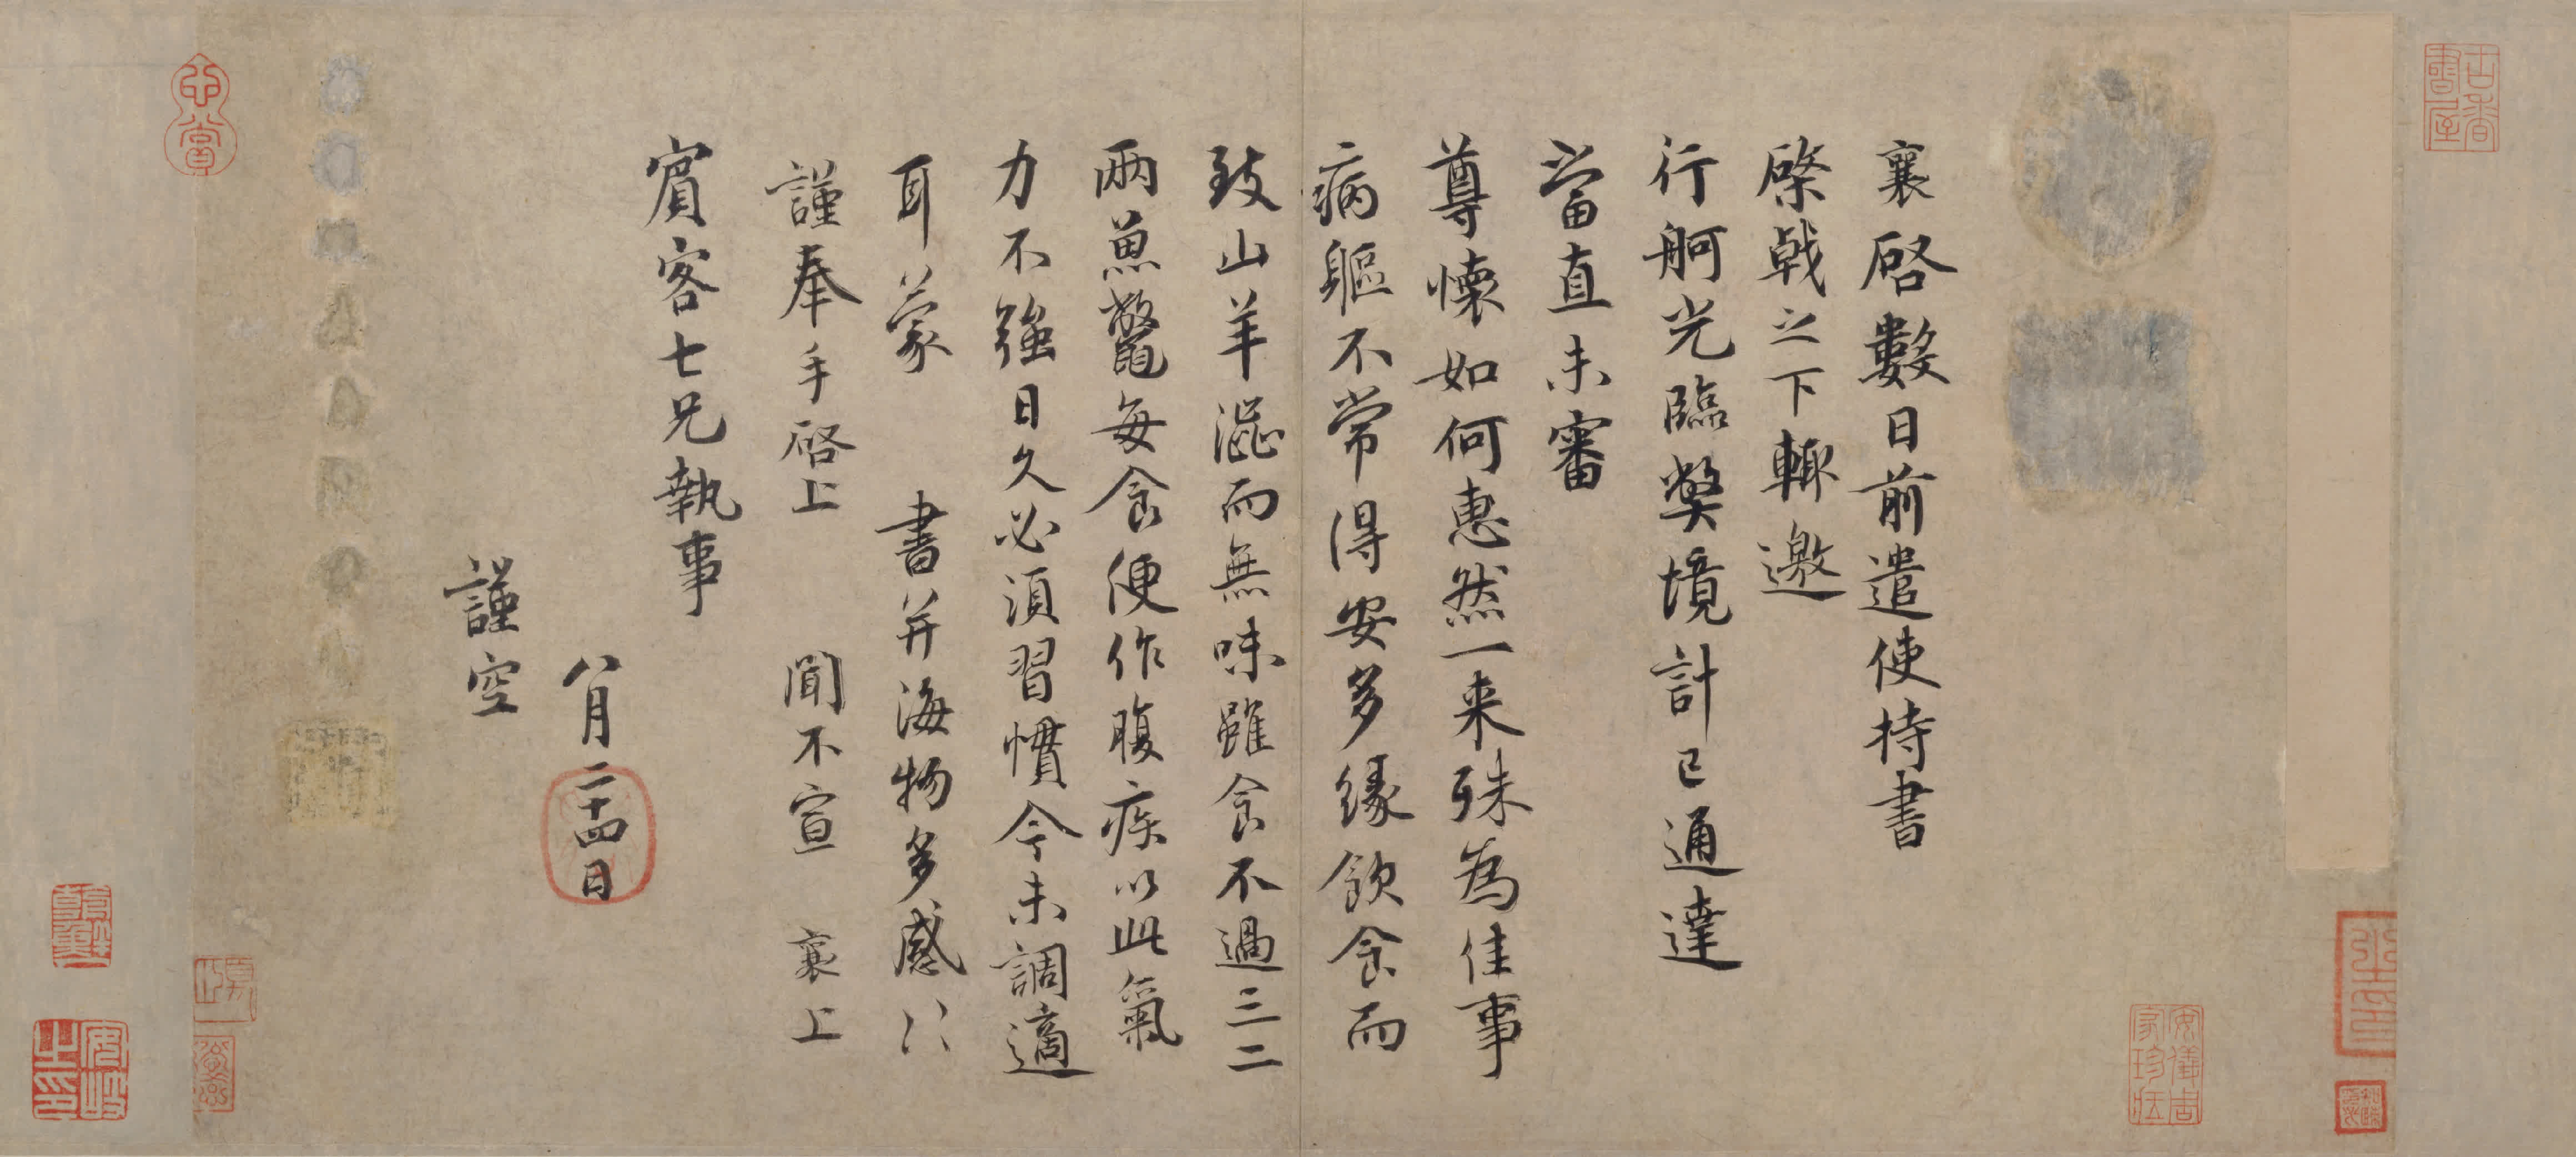 襄啓數日前遣使持書
棨戟之下輙邀
行舸光臨獘境計已通達
當直未審
尊懷如何惠然一来殊為佳事
病軀不常得安多緣飲食而
致山羊澁而無味雖食不過三二
兩魚鱉每食便作腹疾以此氣
力不強日久必須習慣今未調適
耳蒙 書并海物多感〻
謹奉手啓上 聞不宣 襄上
賔客七兄執事
八月二十四日
謹空
古香書屋
安儀周家珍藏
安岐之印
心賞